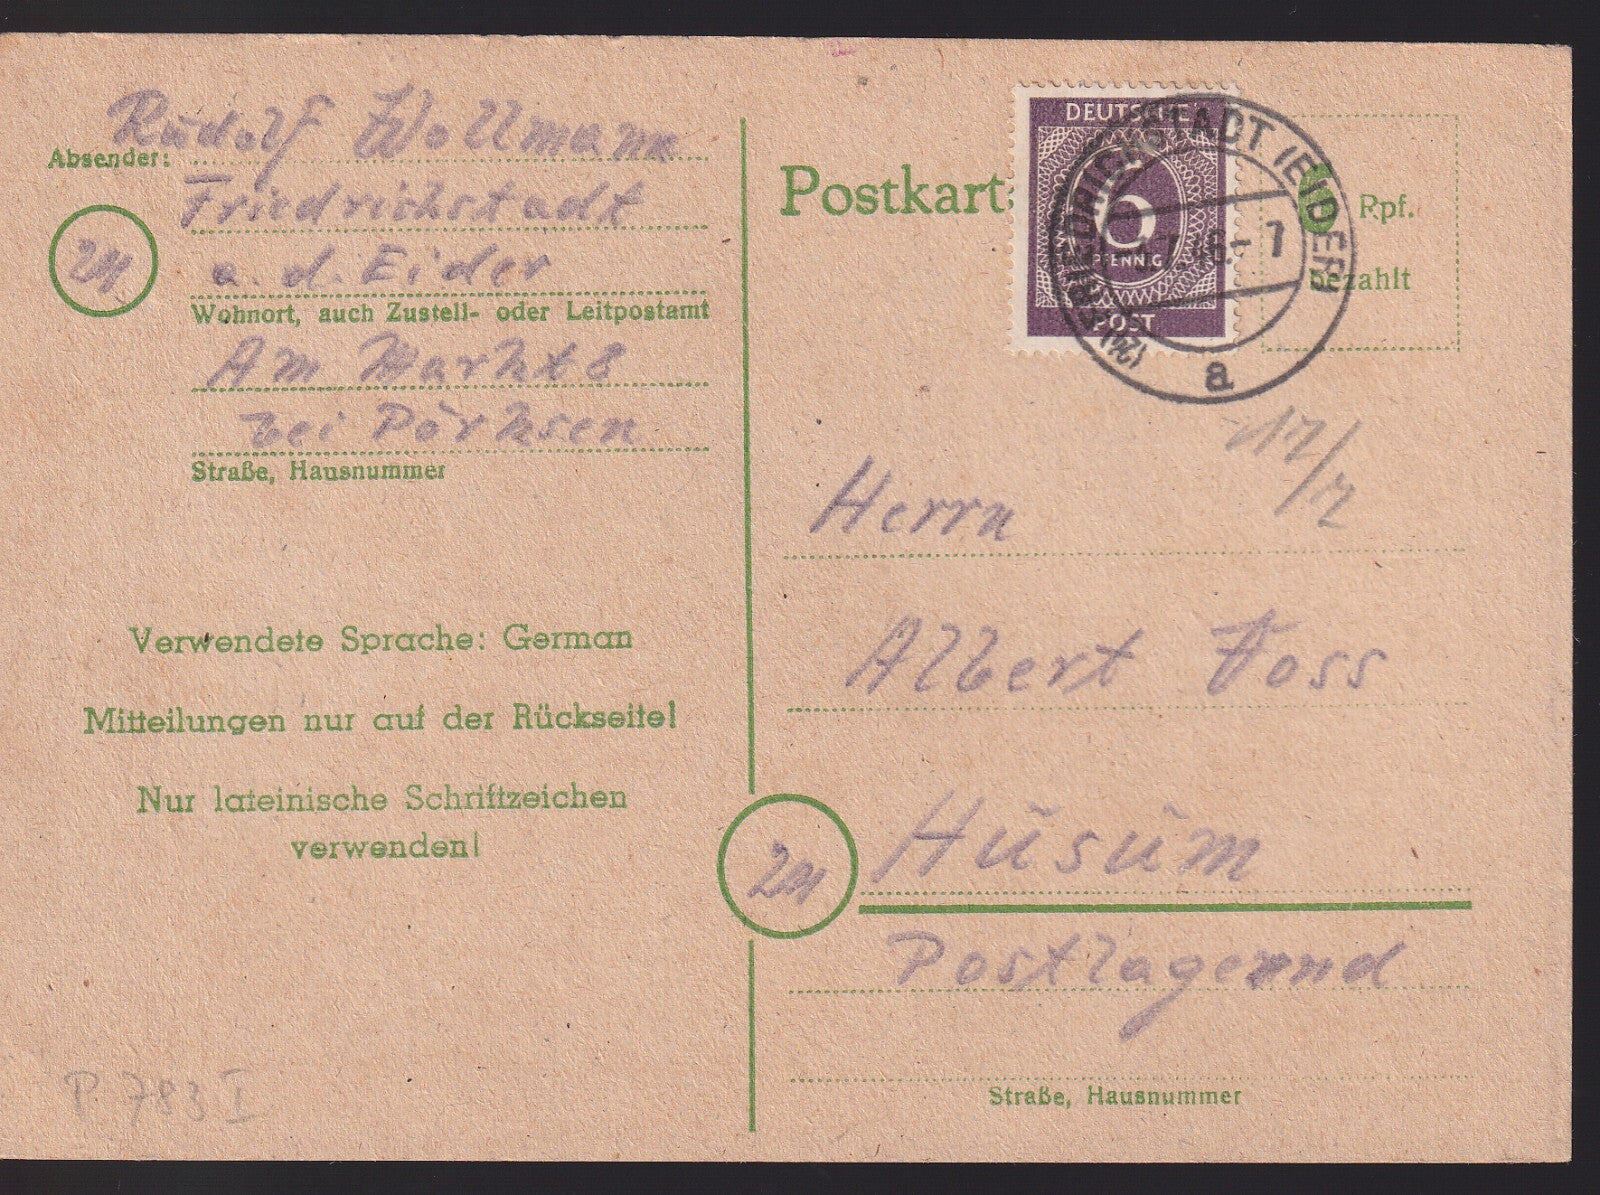 Rudolf Wollmann
Absender:
Friedrichstadt
24
a. d. Eider
Wohnort, auch Zustell- oder Leitpostamt
Am Markt 8
bei Pörksen
Straße, Hausnummer
Verwendete Sprache: German
Mitteilungen nur auf der Rückseite!
Nur lateinische Schriftzeichen
verwenden!
P. 783 I
Postkart
DEUTSCHE
6
PFENNIG
POST
(24) FRIEDRICHSTADT (EIDER)
7.46.- 7
a
Rpf.
bezahlt
Herrn
Albert Voss
24
Husum
Postlagernd
Straße, Hausnummer